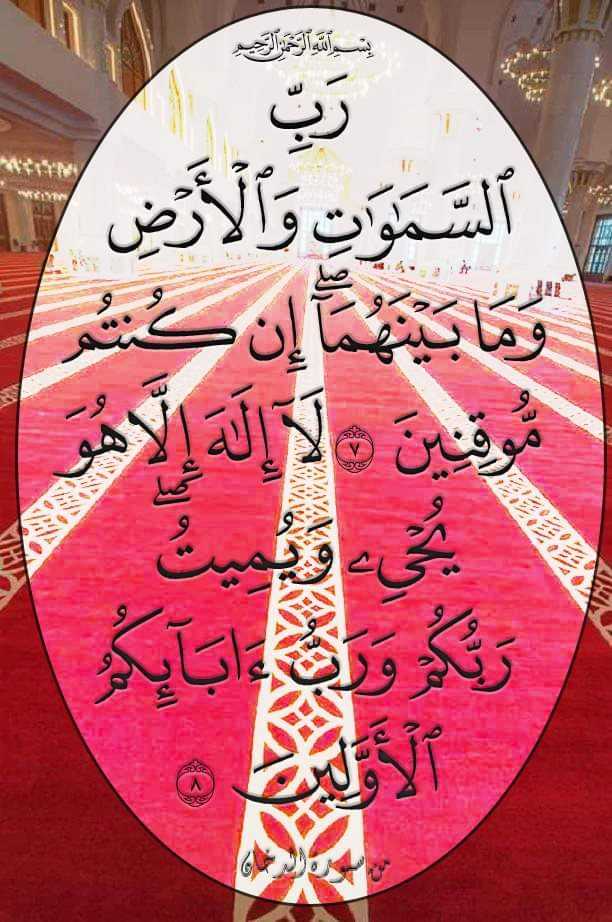 بِسْمِ ٱللَّهِ ٱلرَّحْمَٰنِ ٱلرَّحِيمِ
رَبِّ
ٱلسَّمَٰوَٰتِ وَٱلْأَرْضِ
وَمَا بَيْنَهُمَآ ۖ إِن كُنتُم
مُّوقِنِينَ ٧ لَآ إِلَٰهَ إِلَّا هُوَ
يُحْىِۦ وَيُمِيتُ ۖ
رَبُّكُمْ وَرَبُّ ءَابَآئِكُمُ
ٱلْأَوَّلِينَ ٨
من سورة الدخان